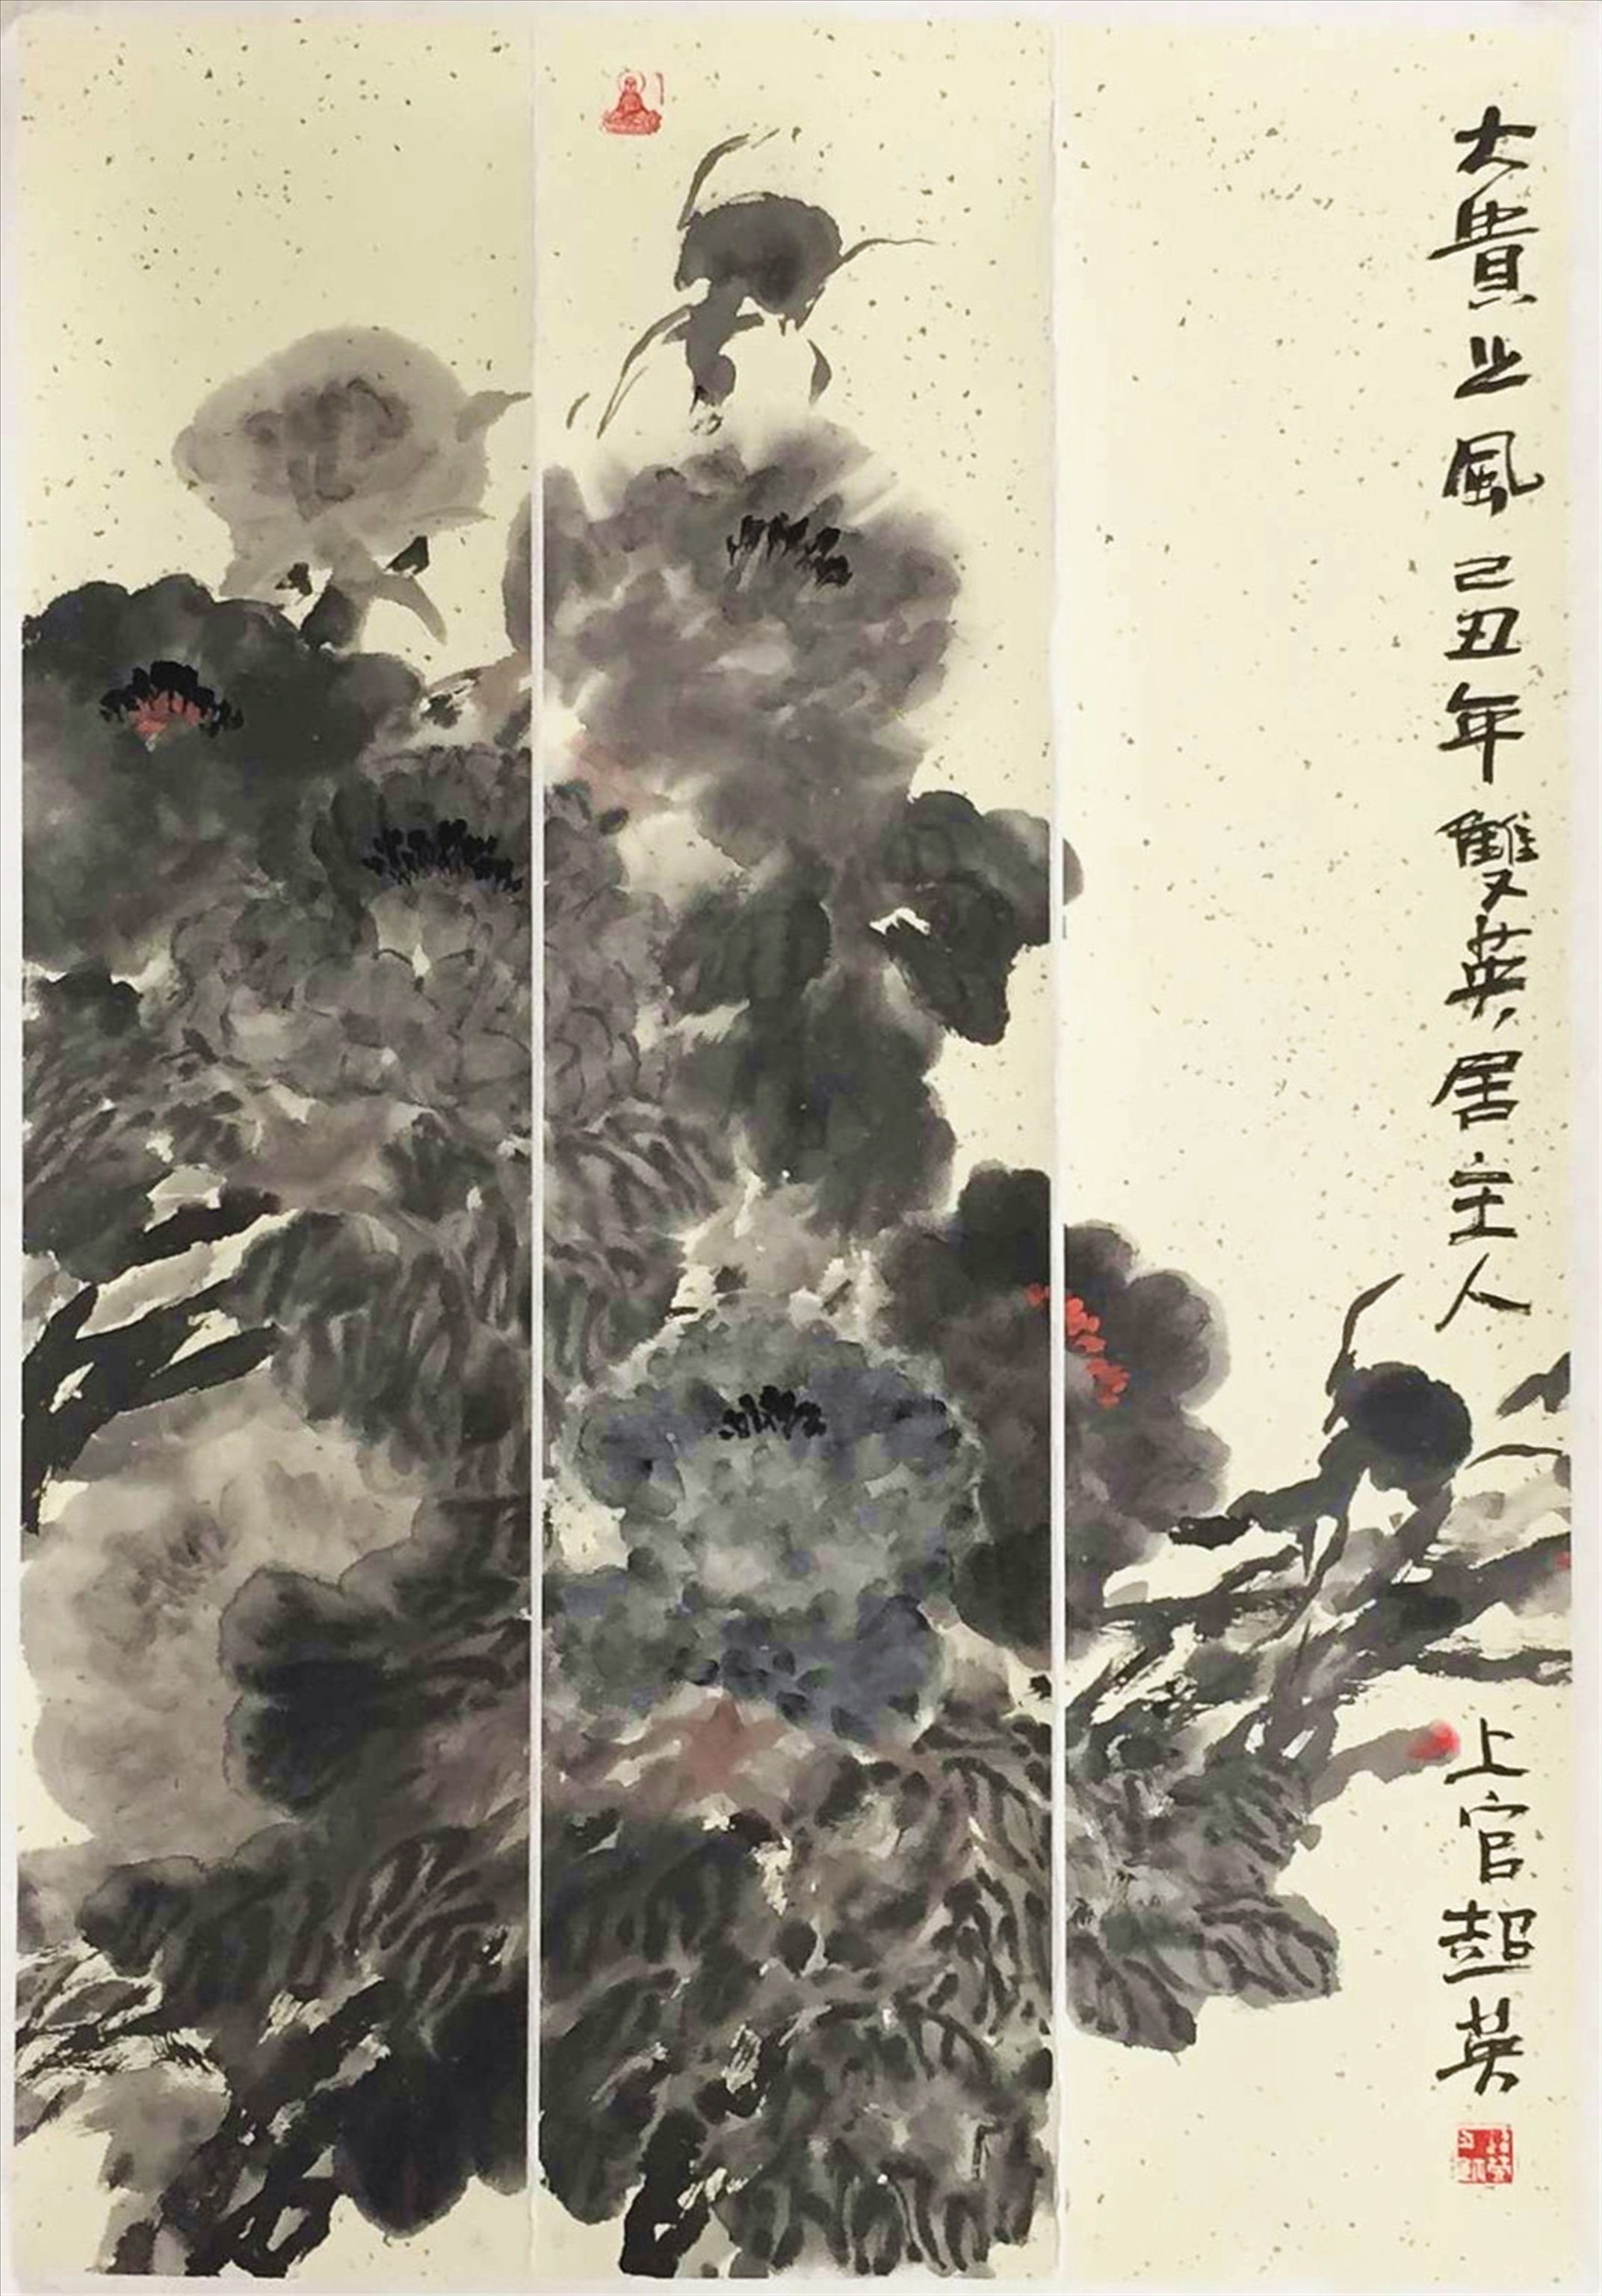 大貴之風己丑年雙英居主人
上官超英